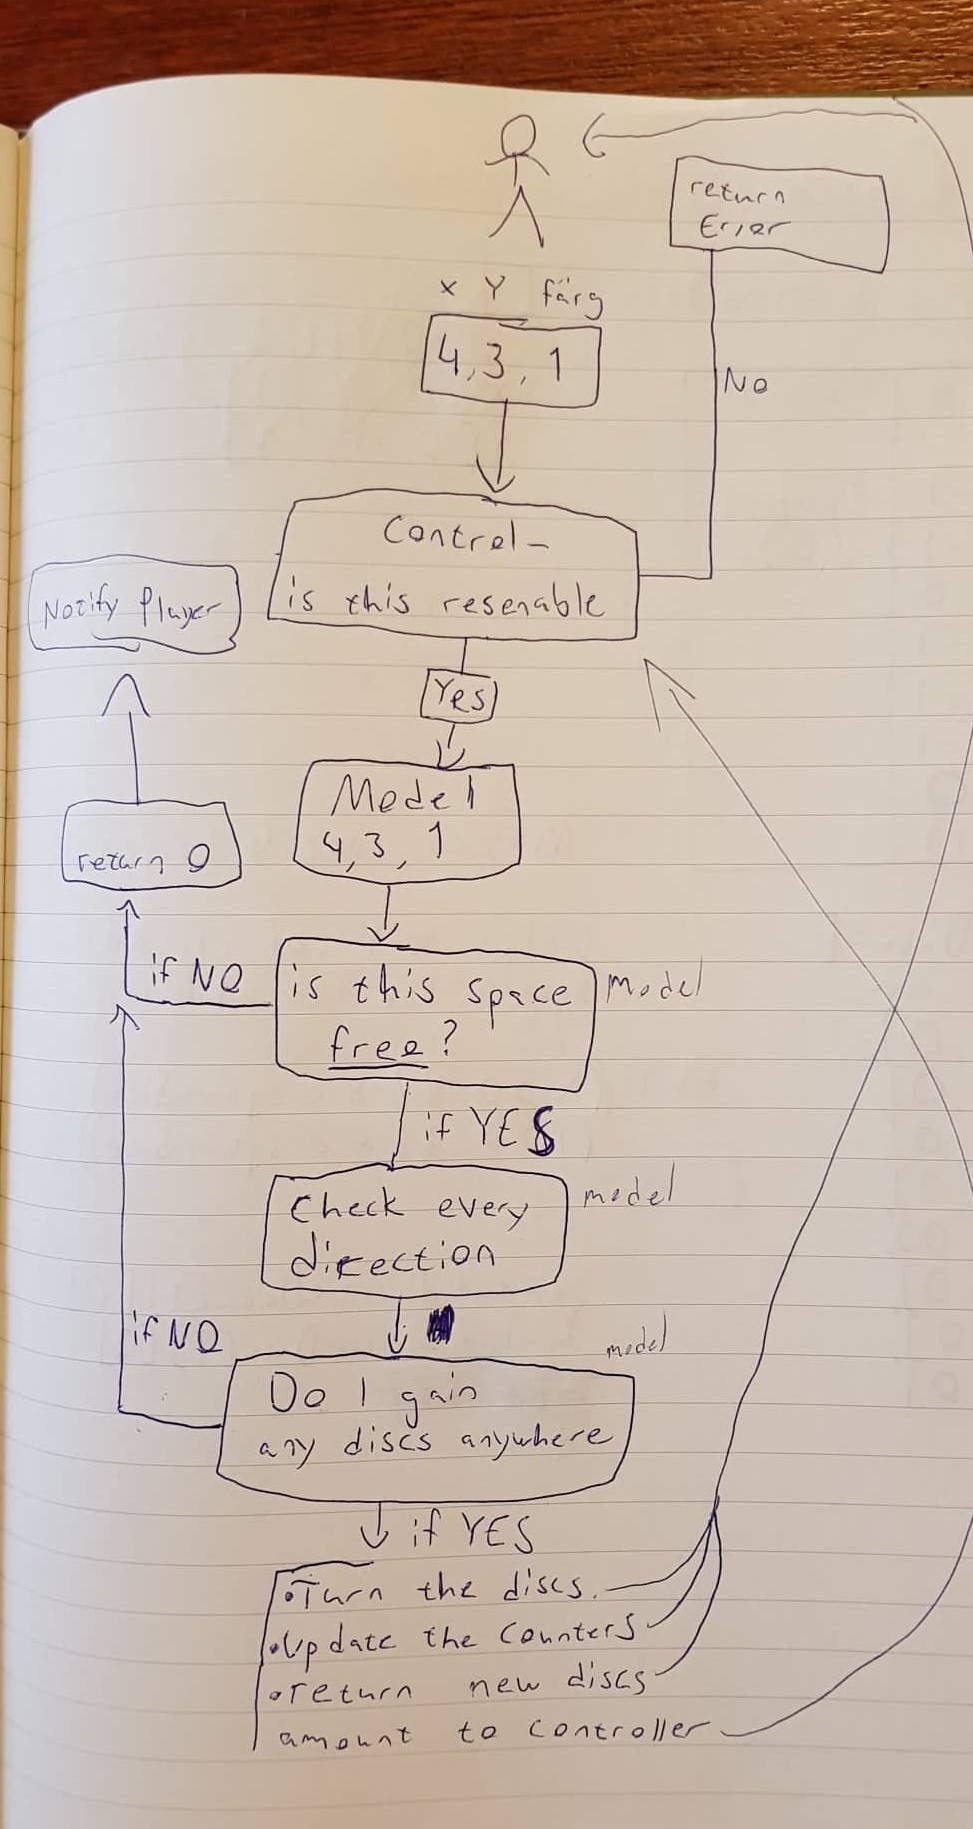 return
Error
x Y färg
4, 3, 1
No
Control-
is this resenable
Notify Player
Yes
Model
4, 3, 1
return 0
if NO
is this space
free?
Model
if YES
Check every
direction
model
if NO
model
Do I gain
any discs anywhere
if YES
•Turn the discs.
•Update the counters
•return new discs
amount to controller